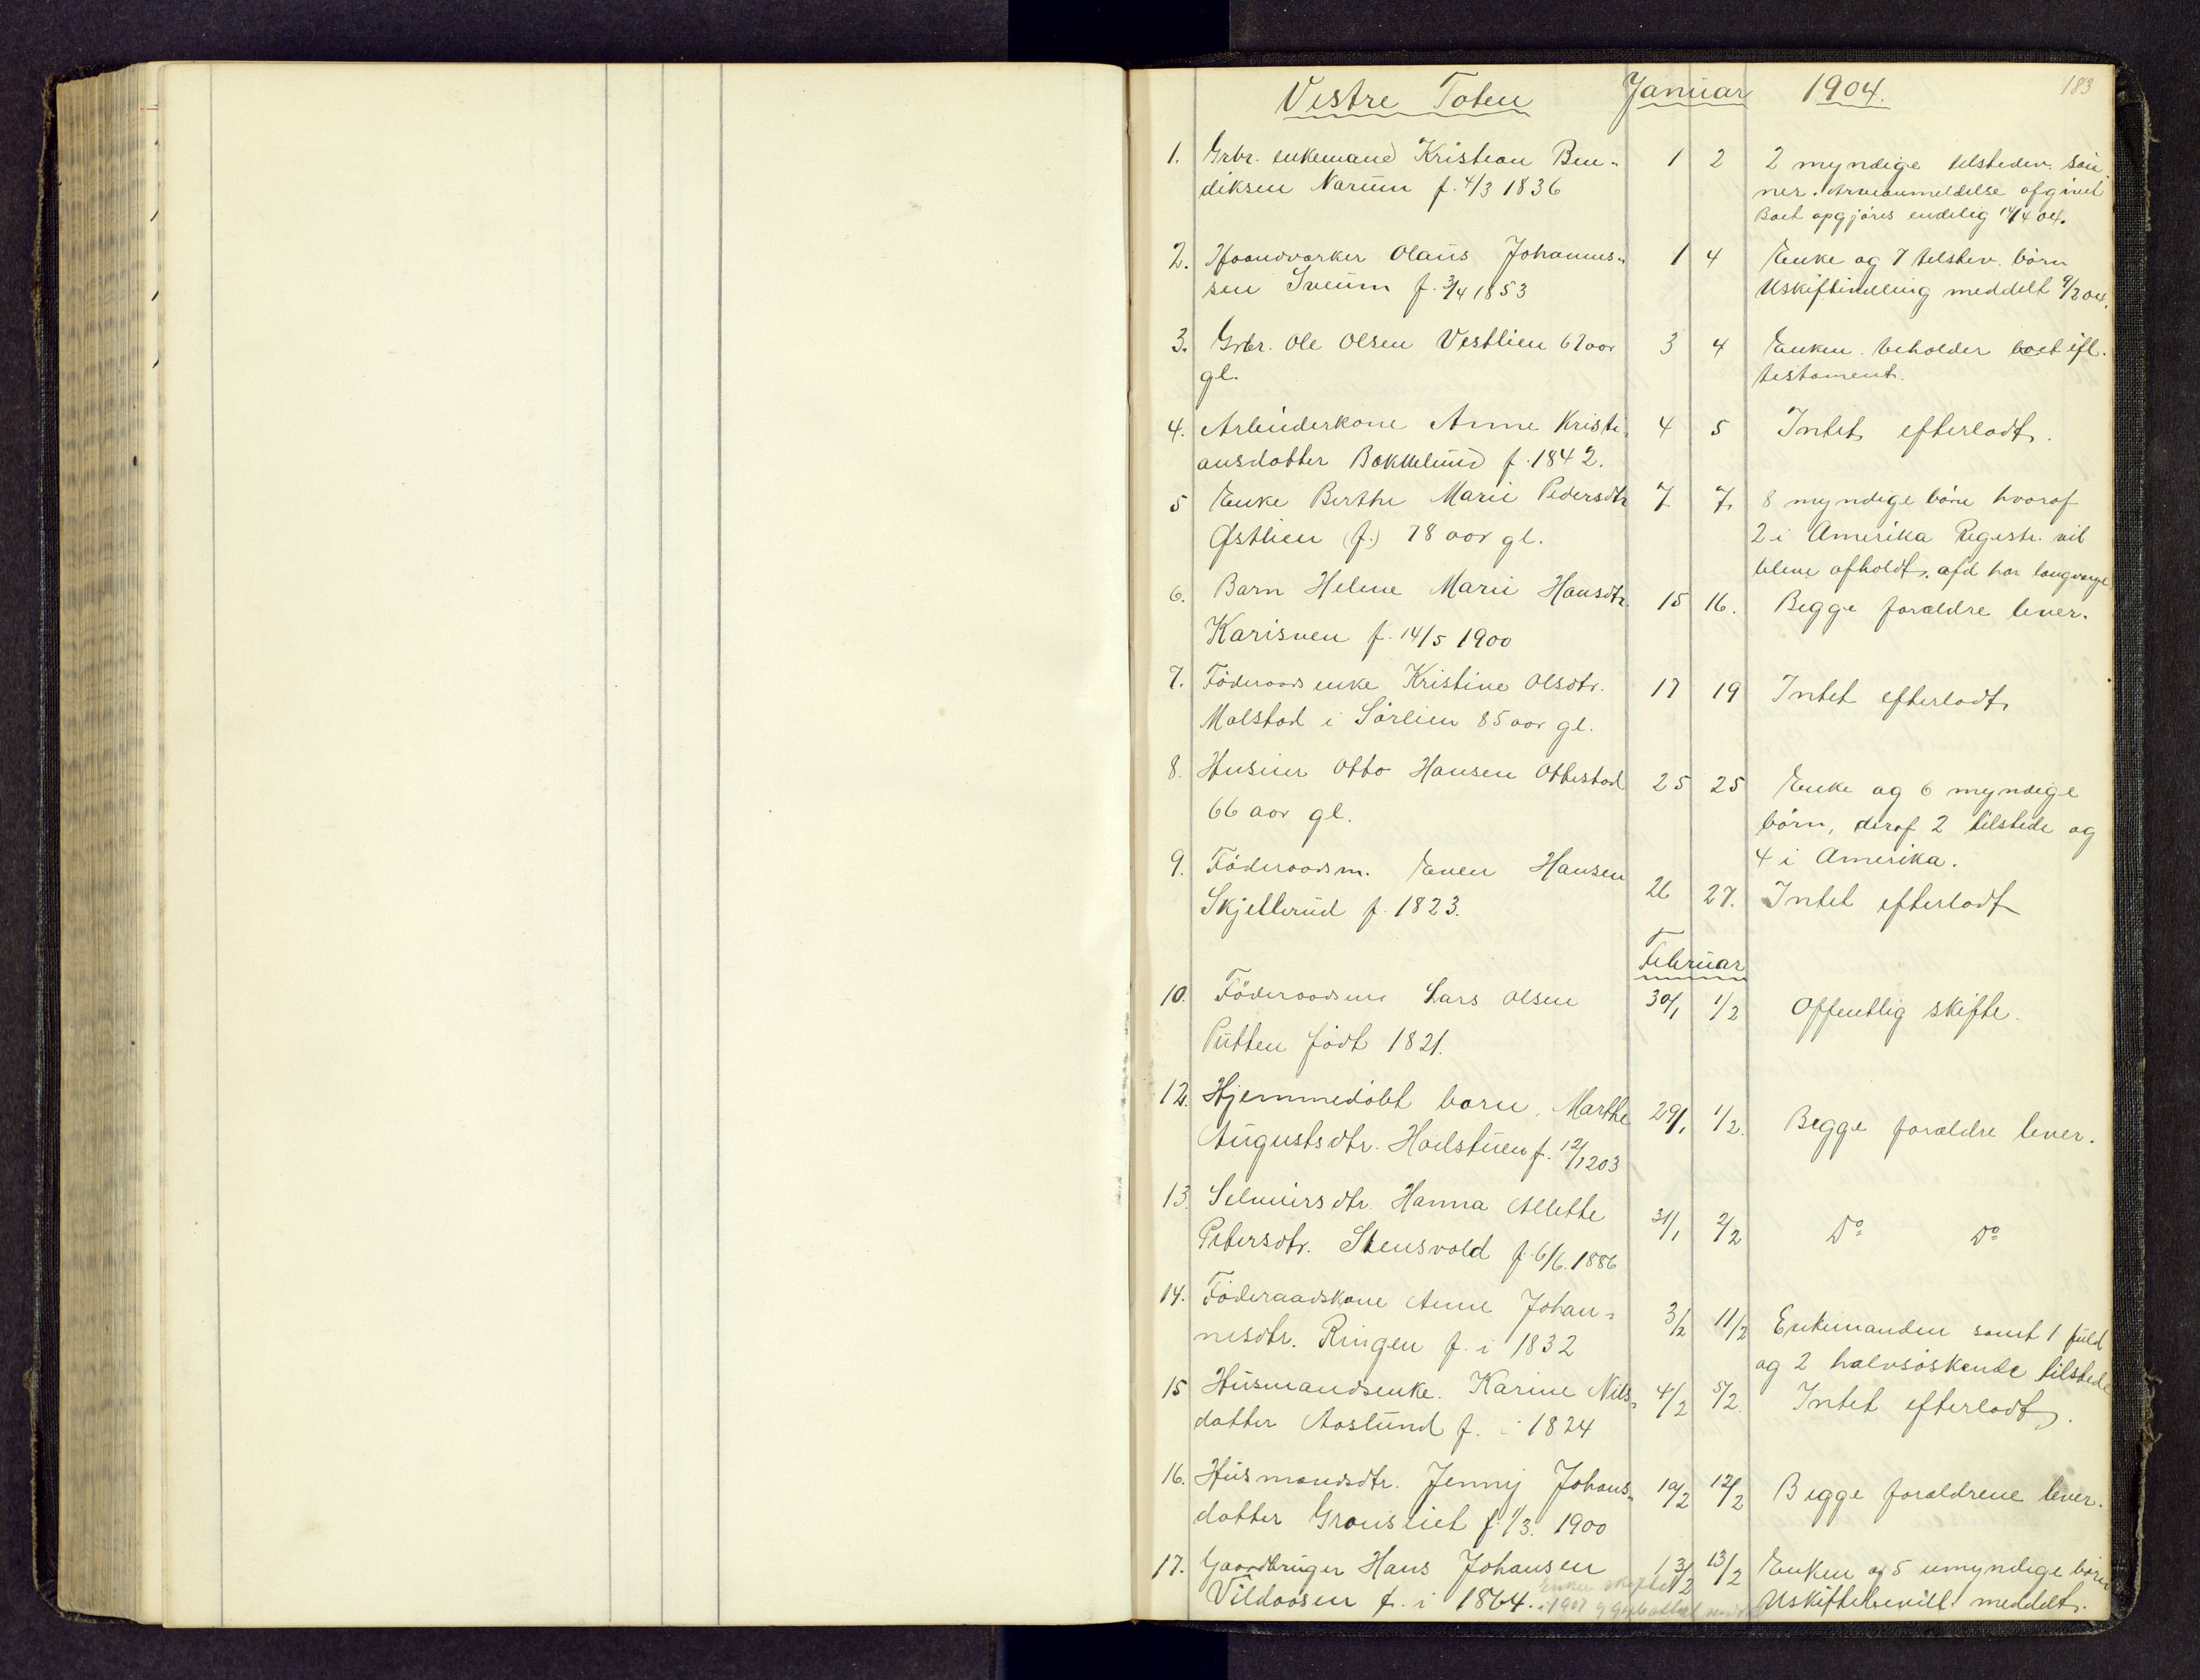 Vestre Toten Januar 1904. 183
1. Grbr. enkemand Kristian Ben- 1 2 2 myndige tilstedev. søn-
diksen Narum f. 4/3 1836 ner. Arveanmeldelse afgivet
Boet opgjøres endelig 14/4 04.
2. Haandverker Olaus Johannes- 1 4 Enke og 7 tilstev. børn
sen Sveum f. 3/4 1853 Uskiftebevilling meddelt 9/2 04.
3. Grbr. Ole Olsen Vestlien 67 aar 3 4 Enken beholder boet ifl.
gl. testament.
4. Arbeiderkone Anne Kristi- 4 5 Intet efterladt.
ansdatter Bakkelund f. 1842.
5 Enke Berthe Marie Pedersdtr 7 7. 8 myndige børn hvoraf
Østlien (f.) 78 aar gl. 2 i Amerika Registr. vil
blive afholdt. afd har
6. Barn Helene Marie Hansdtr. 15 16. Begge forældre lever.
Karisven f. 14/5 1900
7. Föderaadsenke Kristine Olsdtr. 17 19 Intet efterladt
Malstad i Sörlien 85 aar gl.
8. Husmer Otto Hansen Ottestad 25 25 Enke og 6 myndige
66 aar gl. børn, deraf 2 tilstede og
4 i Amerika.
9. Föderaadsm. Even Hansen 26 27. Intet efterladt
Skjellerud f. 1823.
Februar
10. Föderaadsm Lars Olsen 30/1 1/2 Offentlig skifte.
Putten født 1821.
12. Hjemmedøbt barn Marthe 29/1 1/2. Begge forældre lever.
Augustsdtr. Hoilstuen f. 12/12 03
13. Selveiersdtr. Hanna Allette 31/1 2/2 Do Do
Petersdtr. Stensvold f. 6/6. 1886
14. Föderaadskone Anne Johan- 3/2 11/2 Enkemanden samt 1 fuld
nesdtr. Ringen f. i 1832 og 2 halvsøskende tilstede
15 Husmandsenke. Karine Nils- 4/2 5/2. Intet efterladt.
datter Aaslund f. i 1824
16. Husmandsdtr. Jenny Johans- 10/2 12/2 Begge forældrene lever.
datter Gransliet f. 1/3. 1900
17. Gaardbruger Hans Johansen 13/2 13/2 Enken og 5 umyndige børn
Vildaasen f. i 1864. Enken skiftet Uskiftebevill. meddelt.
i 1907